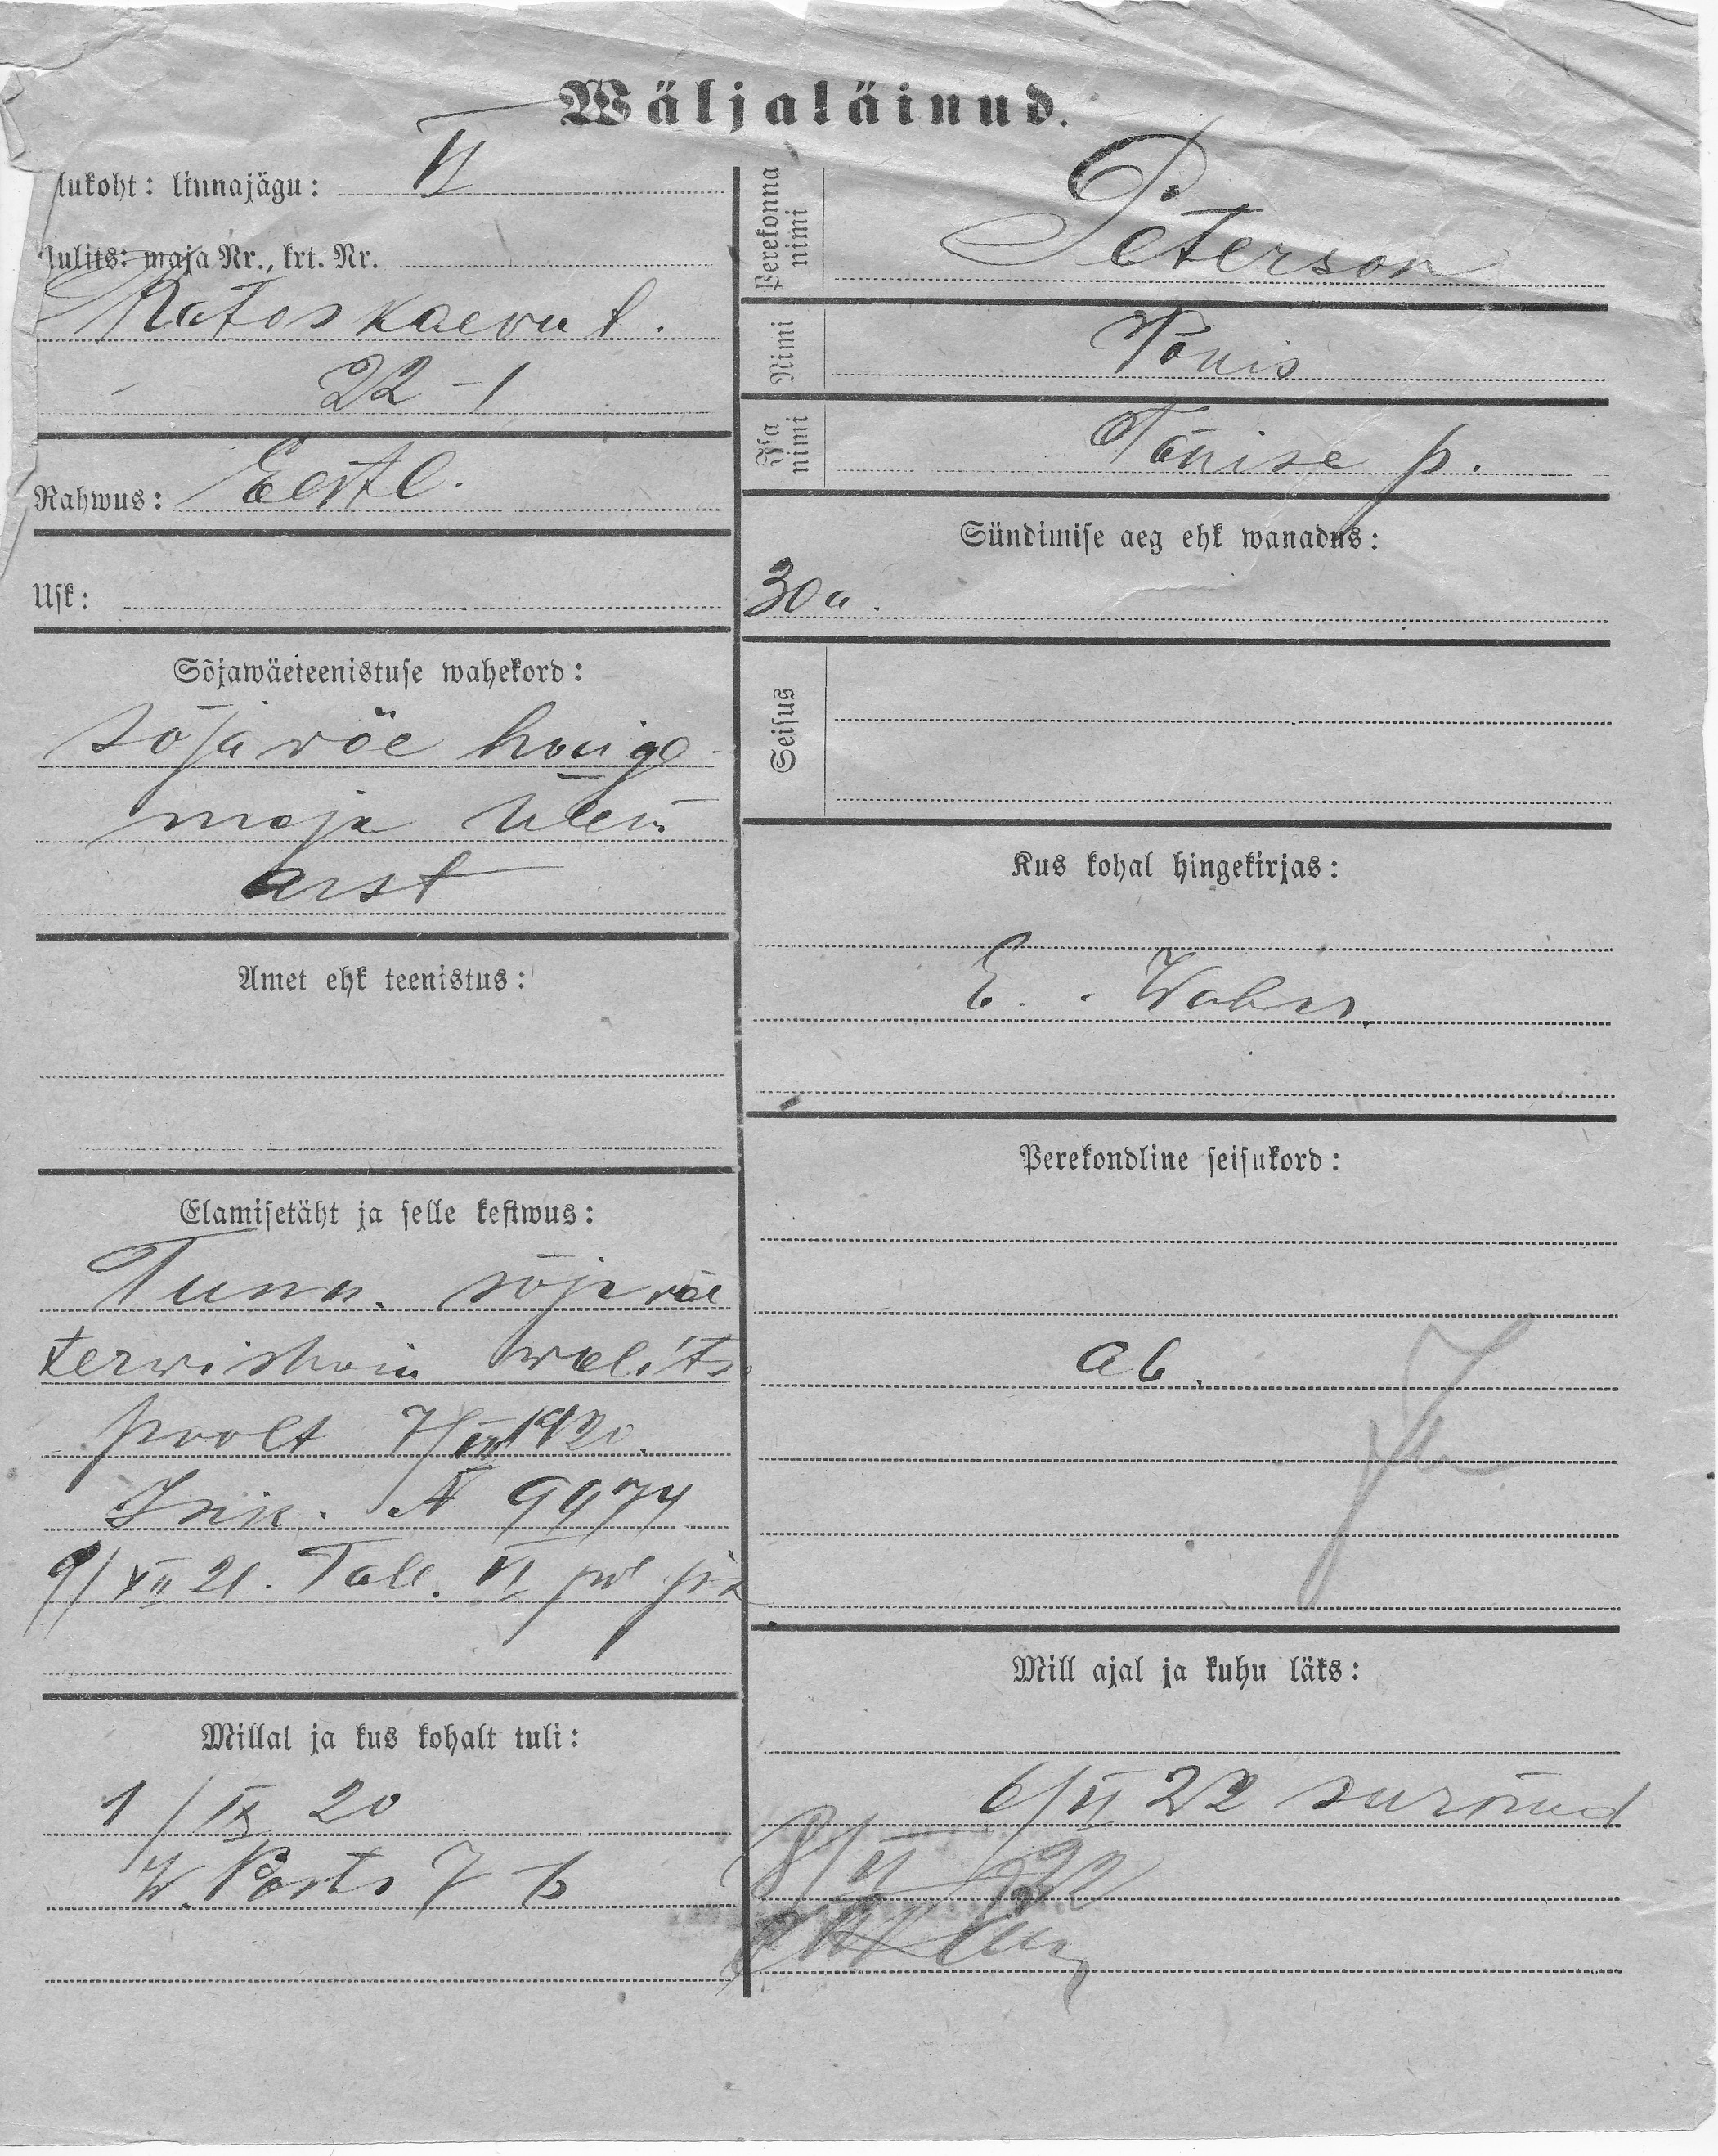 Wäljaläinud.
lukoht: linnajägu: VI
lulits: maja Nr., krt. Nr.
Rataskaevu t.
22 - 1
Rahwus: Eestl.
Usk:
Sõjawäeteenistuse wahekord:
sõjawäe haige
maja ülem
arst
Amet ehk teenistus:
Elamisetäht ja selle kestwus:
Tunn. sõjawäe
terwishoiu walits.
poolt 7/VII 1920.
Isik. № 9974
9/XII 21. Tall. VI
Millal ja kus kohalt tuli:
1/IX 20
W. Pärtn 7
Perekonna nimi
Peterson
Nimi
Tõnis
Isa nimi
Tõnise p.
Sündimise aeg ehk wanadus:
30 a.
Seisus
Kus kohal hingekirjas:
E. Wabar.
Perekondline seisukord:
ab.
Mill ajal ja kuhu läks:
6/VI 22 surnud
8/VI 22